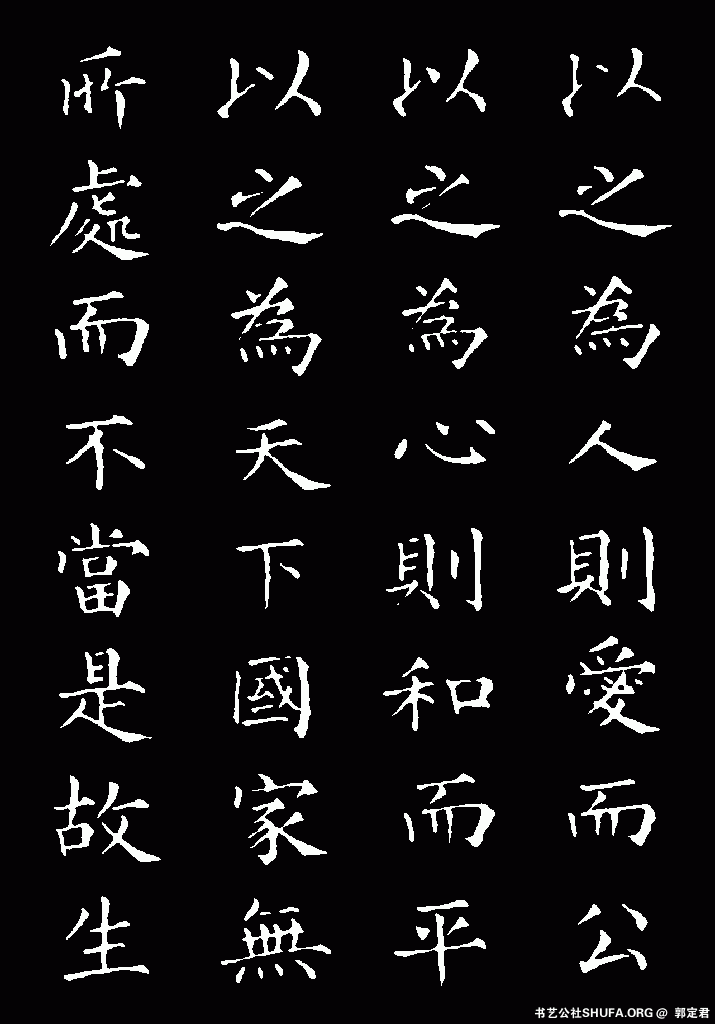 以之為人則愛而公
以之為心則和而平
以之為天下國家無
所處而不當是故生
书艺公社SHUFA.ORG @ 郭定君